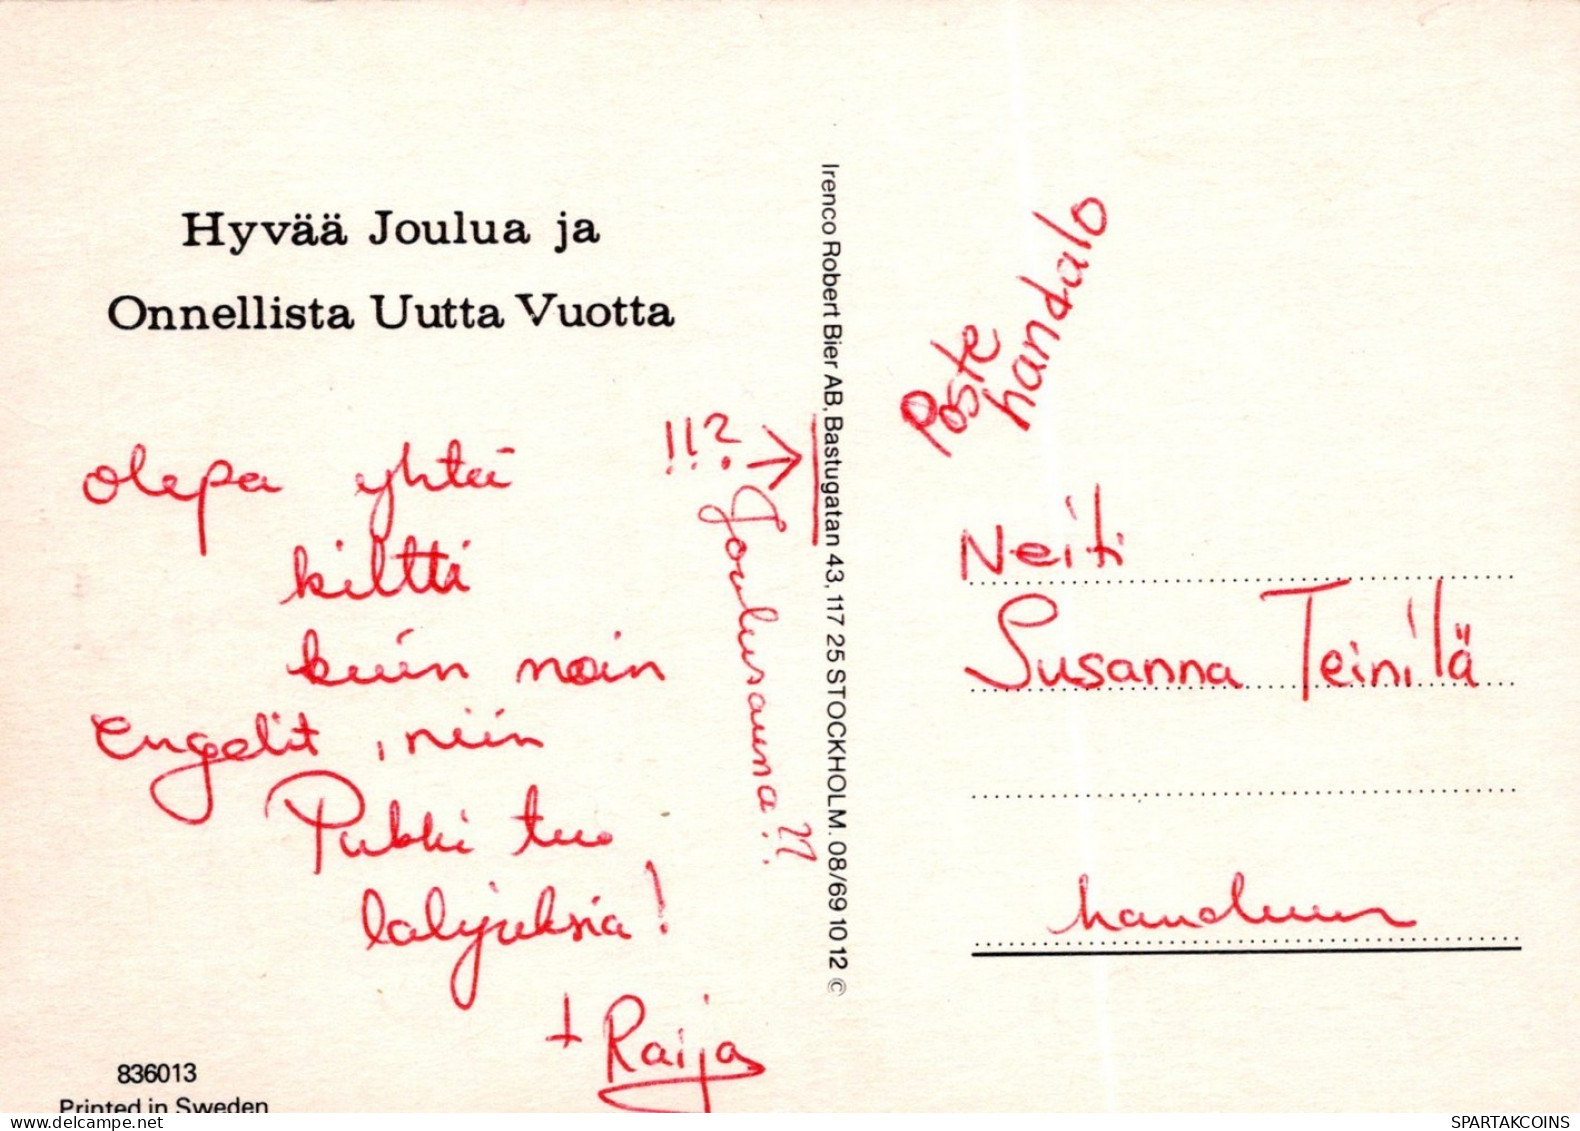 Hyvää Joulua ja
Onnellista Uutta Vuotta
olepa yhtä
kiltti
kuin noin
Engelit, niin
Pukki tuo
lahjuksia!
+ Raija
!!? →
Joulusauna??
Irenco Robert Bier AB, Bastugatan 43, 117 25 STOCKHOLM. 08/69 10 12 ©
Poste
handalo
Neiti
Susanna Teinilä
836013
Printed in Sweden
SPARTAKCOINS